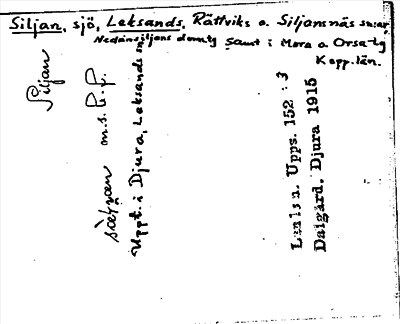 Siljan, sjö, Leksands, Rättviks o. Siljansnäs snar
Nedansiljans domtg samt i Mora o Orsa tg
Kopp. län.
Siljan
m.s. b.f.
Uppt. i Djura, Leksands sn.
Upps. 152 : 3
Dalgård. Djura 1915